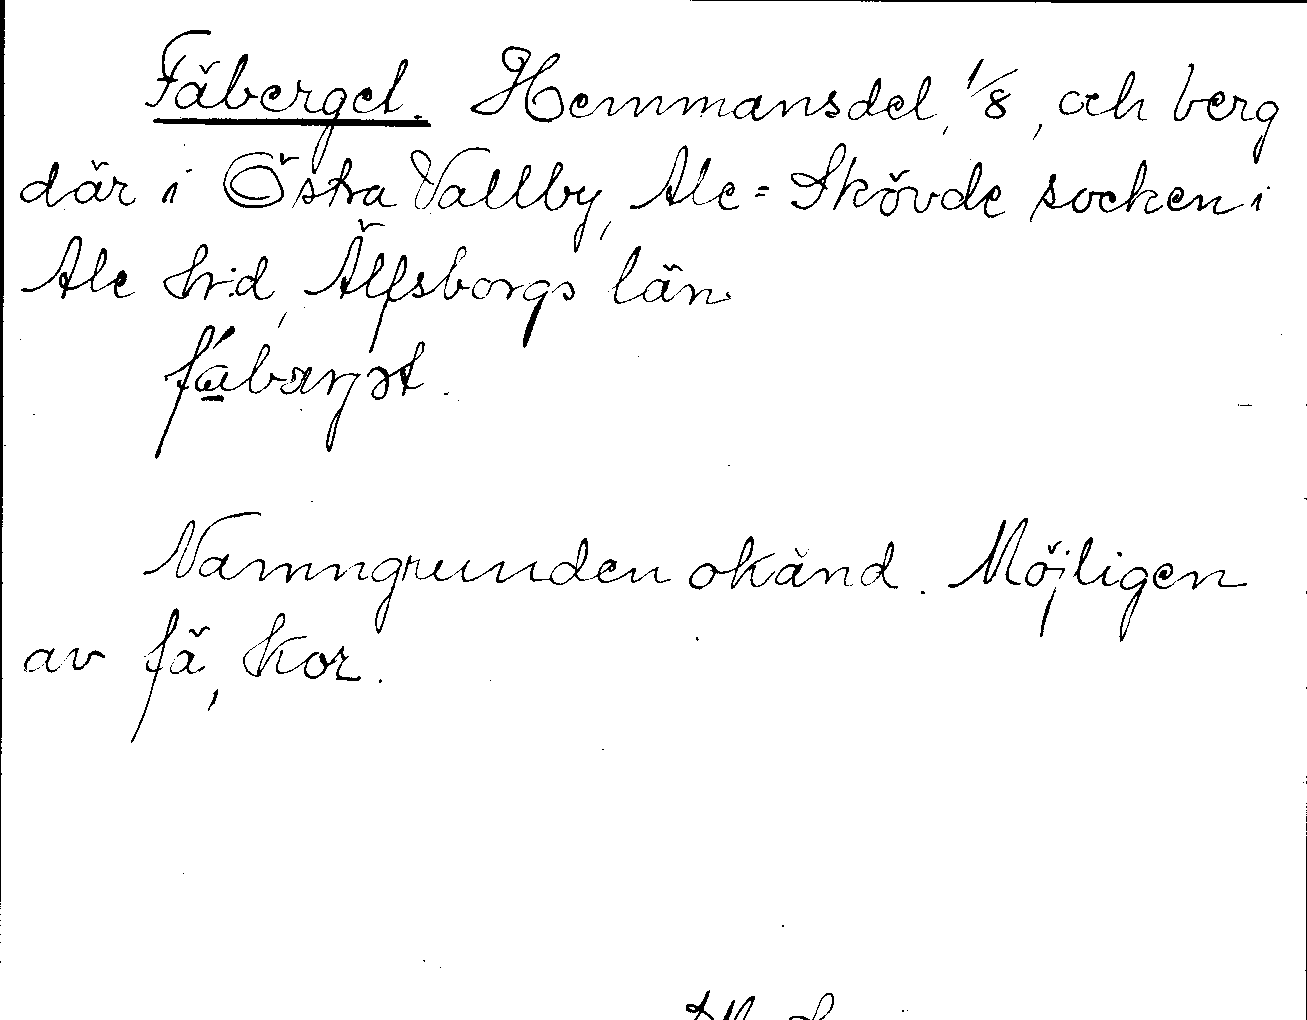 Fäberget. Hemmansdel, 1/8, och berg
där i Östra Vallby, Ale-Skövde socken i
Ale h:d, Älfsborgs län
Namngrunden okänd. Möjligen
av fä, kor.